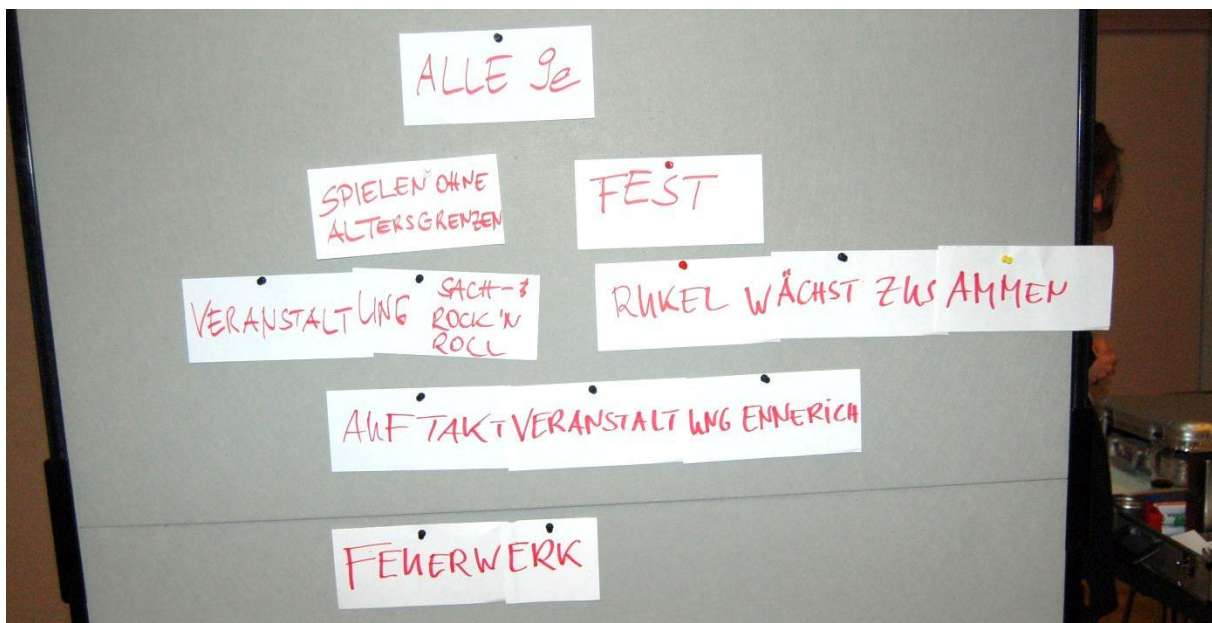 ALLE Je
SPIELEN OHNE
ALTERSGRENZEN
FEST
VERANSTALTUNG SACH-&
ROCK'N
ROLL
RUKEL WÄCHST ZUSAMMEN
AUFTAKTVERANSTALTUNG ENNERICH
FEUERWERK